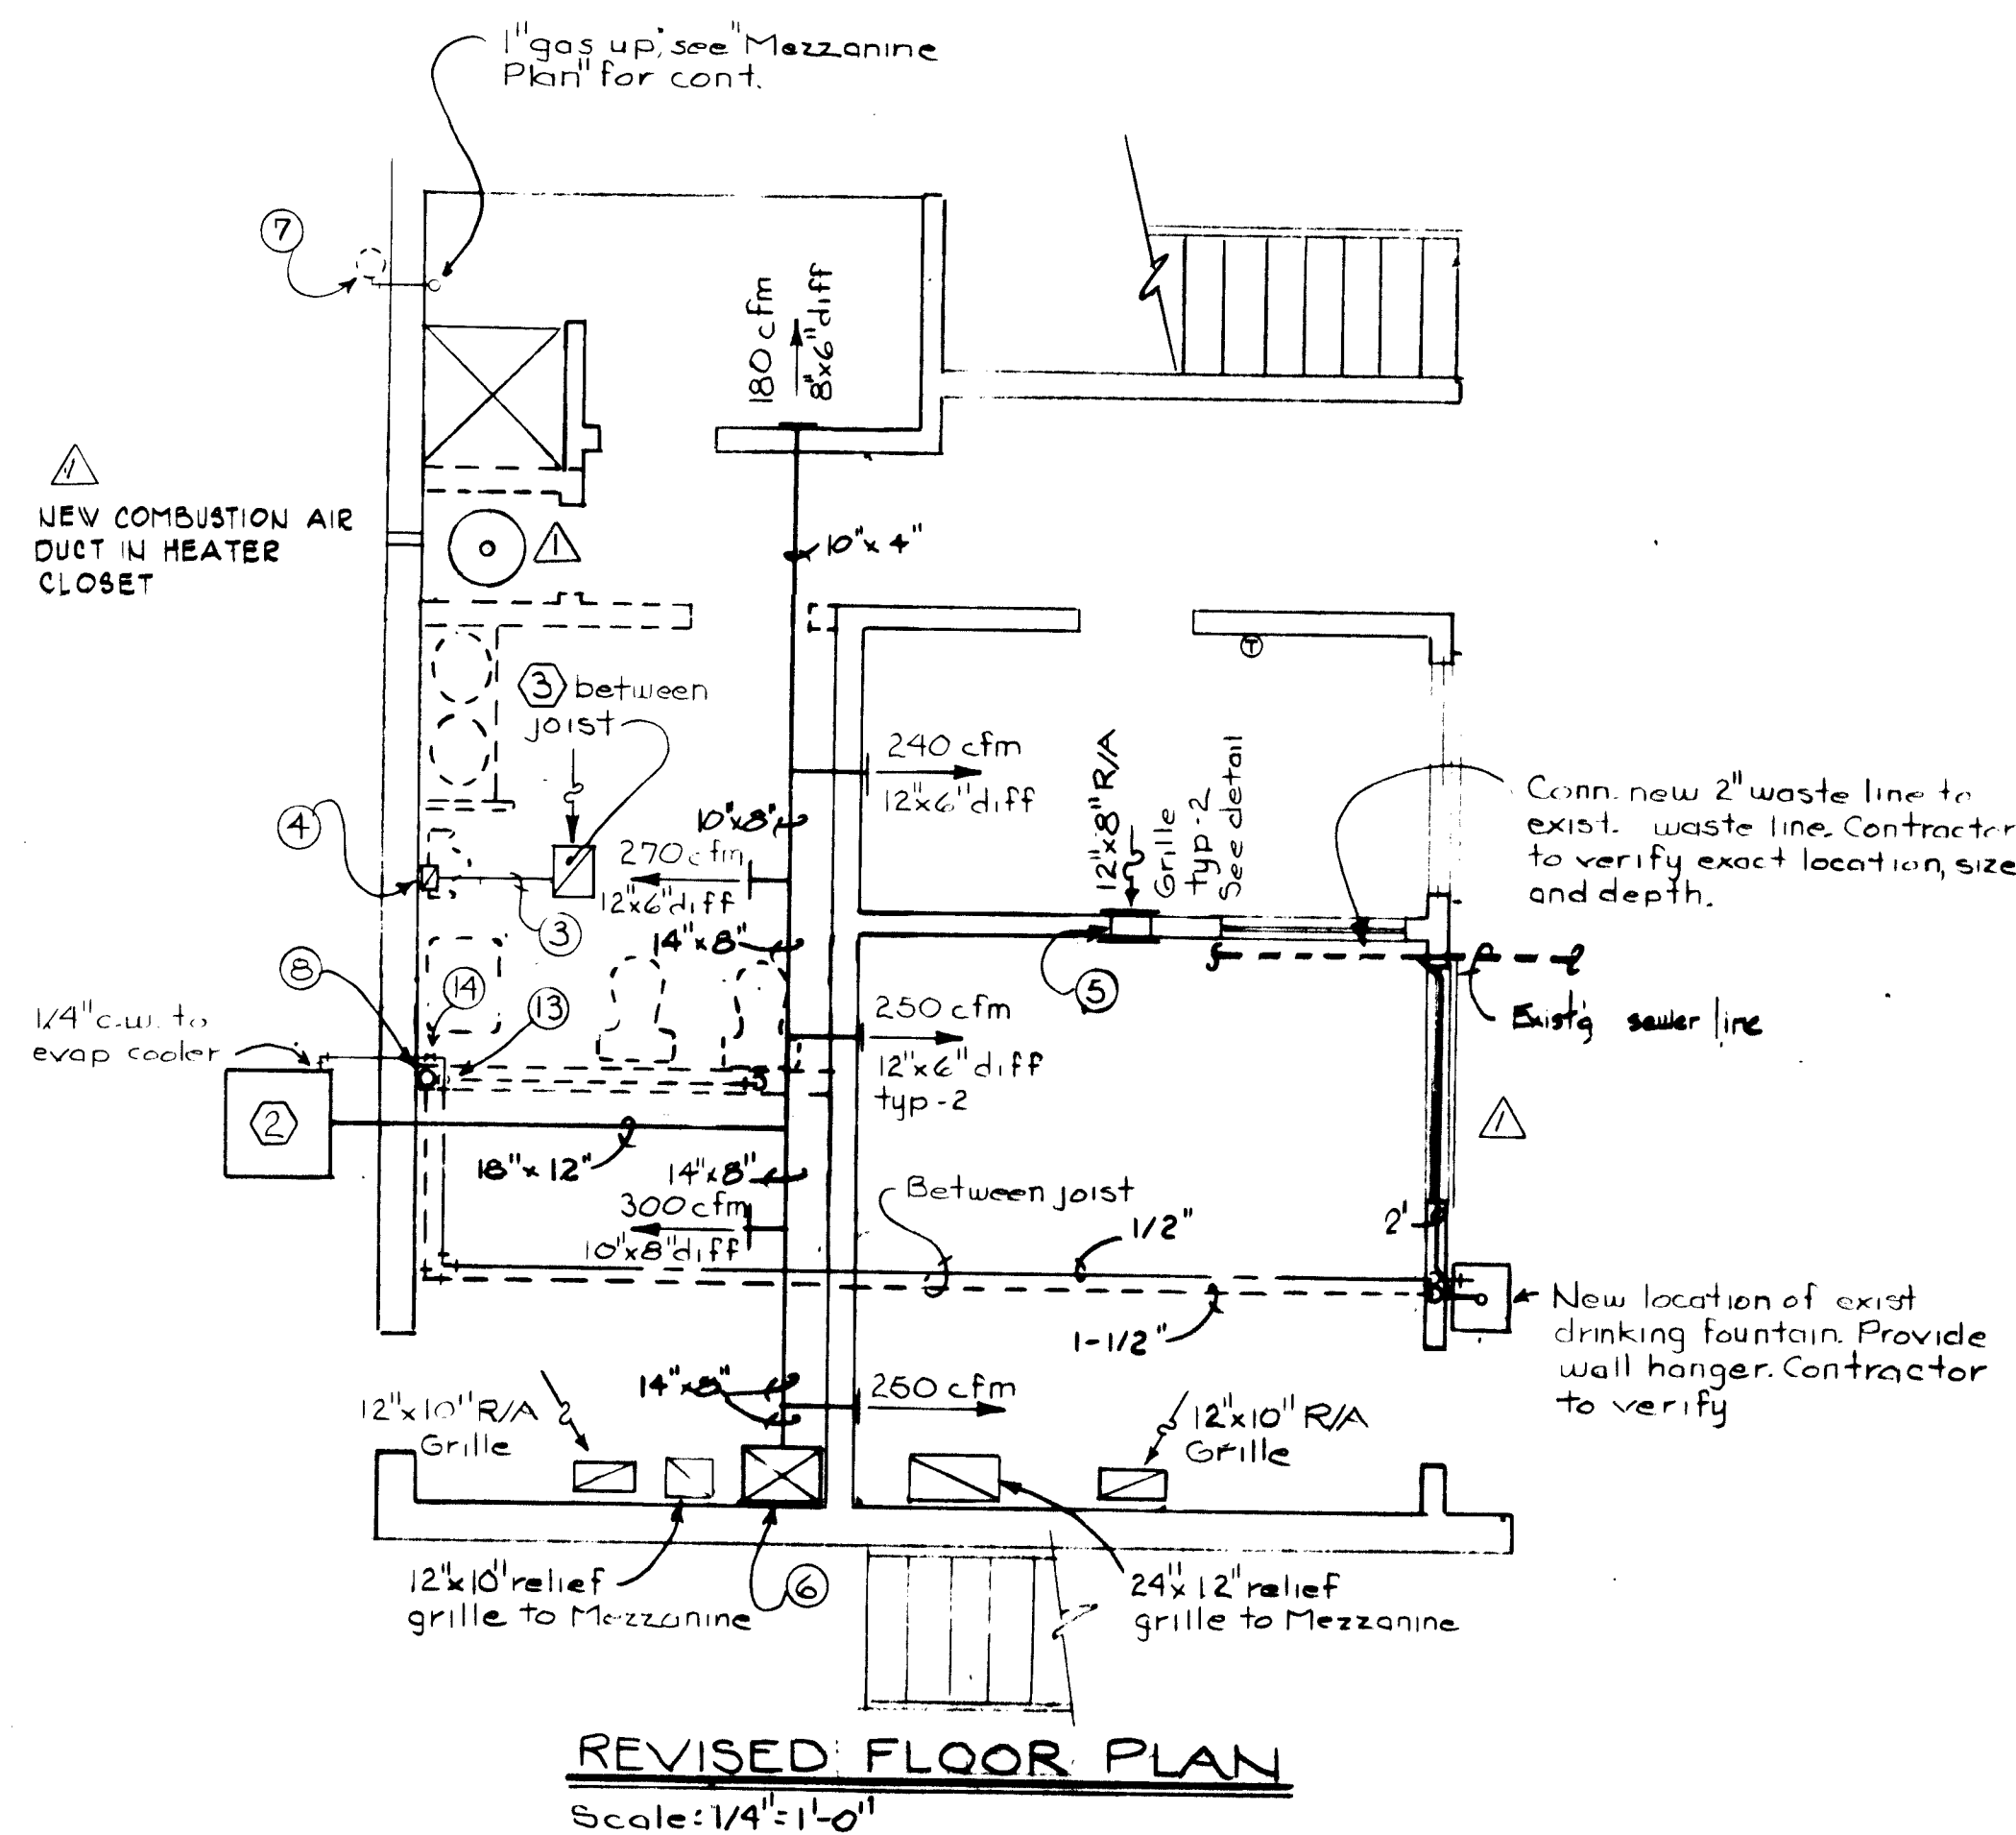 1" gas up; see "Mezzanine
Plan" for cont.
7
180 cfm
8"x6" diff
1
NEW COMBUSTION AIR
DUCT IN HEATER
CLOSET
1
10"x 4"
T
3 between
joist
240 cfm
12"x6" diff
12"x8" R/A
Grille
typ-2
See detail
Conn. new 2" waste line to
exist. waste line. Contractor
to verify exact location, size
and depth.
4
10"x8"
270 cfm
12"x6" diff
3
14"x8"
8
14
13
5
1/4" c.w. to
evap cooler
250 cfm
12"x6" diff
typ-2
Exist'g sewer line
2
1
18"x 12"
14"x8"
300 cfm
10"x8" diff
Between joist
1/2"
2'
1-1/2"
New location of exist
drinking fountain. Provide
wall hanger. Contractor
to verify
14"x8"
260 cfm
12"x10" R/A
Grille
12"x10" R/A
Grille
12"x10" relief
grille to Mezzanine
6
24"x 12" relief
grille to Mezzanine
REVISED FLOOR PLAN
Scale: 1/4"=1'-0"